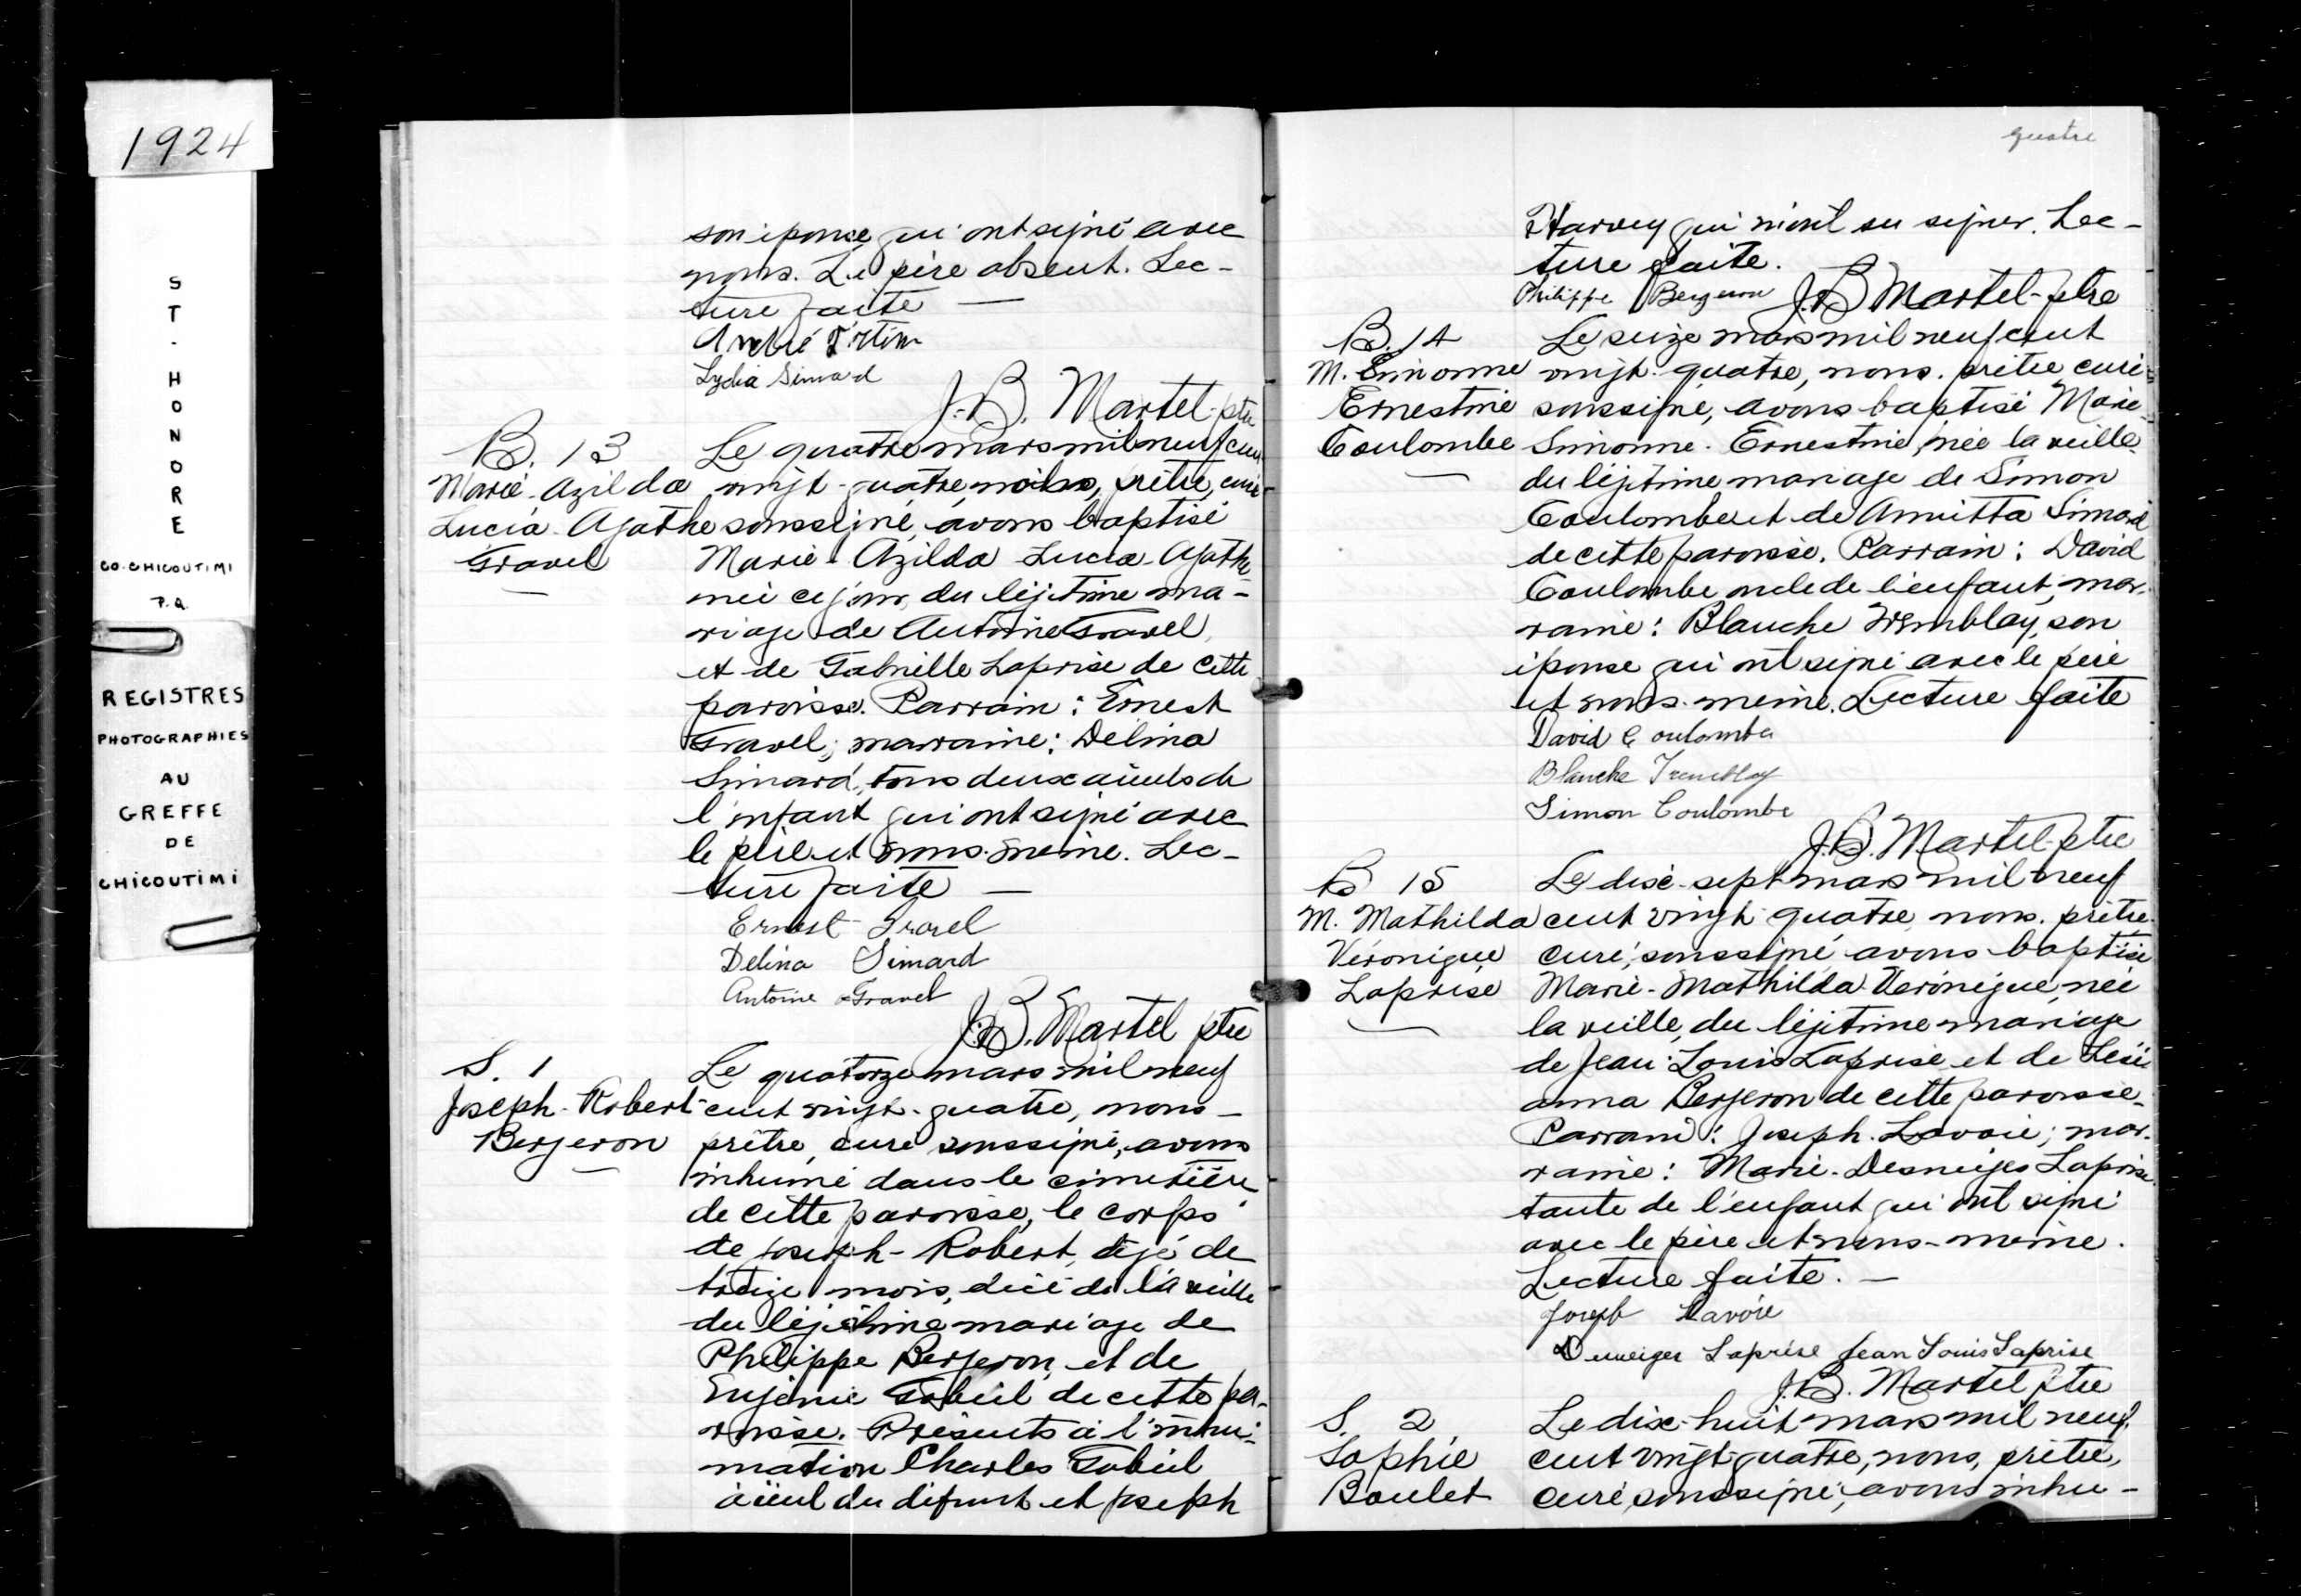 1924
ST-HONORE
CO. CHICOUTIMI
P.Q.
REGISTRES
PHOTOGRAPHIES
AU
GREFFE
DE
CHICOUTIMI
son épouse, qui ont signé avec
nous. Le père absent. Lec-
ture faite —
André
Lydia Simard
J.B. Martel ptre
B. 13
Marie-Azilda
Lucia-Agathe
Gravel
Le quatre mars mil neuf cent
vingt-quatre, nous, prêtre, curé
soussigné, avons baptisé
Marie-Azilda-Lucia-Agathe
née ce jour, du légitime ma-
riage de Antoine Gravel
et de Gabrielle Laprise de cette
paroisse. Parrain: Ernest
Gravel; marraine: Délina
Simard, tous deux aïeuls de
l'enfant qui ont signé avec
le père et nous-même. Lec-
ture faite —
Ernest Gravel
Delina Simard
Antoine Gravel
J.B. Martel ptre
S. 1
Joseph-Robert
Bergeron
Le quatorze mars mil neuf
cent vingt-quatre, nous-
prêtre, curé soussigné, avons
inhumé dans le cimetière
de cette paroisse, le corps
de Joseph-Robert, âgé de
treize mois, décédé la veille
du légitime mariage de
Philippe Bergeron, et de
Eugénie Gobeil de cette pa-
roisse. Présents à l'inhu-
mation Charles Gobeil
aïeul du défunt et Joseph
quatre
Harvey qui n'ont su signer. Lec-
ture faite.
Philippe Bergeron J.B. Martel-ptre
B. 14
M. Simonne
Ernestine
Coulombe
Le seize mars mil neuf cent
vingt-quatre, nous, prêtre curé
soussigné, avons baptisé Marie-
Simonne-Ernestine, née la veille
du légitime mariage de Simon
Coulombe et de Annitta Simard
de cette paroisse. Parrain: David
Coulombe oncle de l'enfant, mar-
raine: Blanche Tremblay, son
épouse qui ont signé avec le père
et nous-même. Lecture faite
David Coulombe
Blanche Tremblay
Simon Coulombe
J.B. Martel-ptre
B 15
M. Mathilda
Véronique
Laprise
Le dix-sept mars mil neuf
cent vingt-quatre, nous, prêtre
curé, soussigné avons baptisé
Marie-Mathilda-Véronique, née
la veille, du légitime mariage
de Jean-Louis Laprise et de
anna Bergeron de cette paroisse-
Parrain: Joseph Lavoie; mar-
raine: Marie-Desneiges Laprise
tante de l'enfant qui ont signé
avec le père et nous-même.
Lecture faite. —
Joseph Lavoie
Desneiges Laprise Jean Louis Laprise
J.B. Martel ptre
S. 2
Sophie
Boulet
Le dix-huit mars mil neuf
cent vingt-quatre, nous, prêtre,
curé, soussigné, avons inhu-